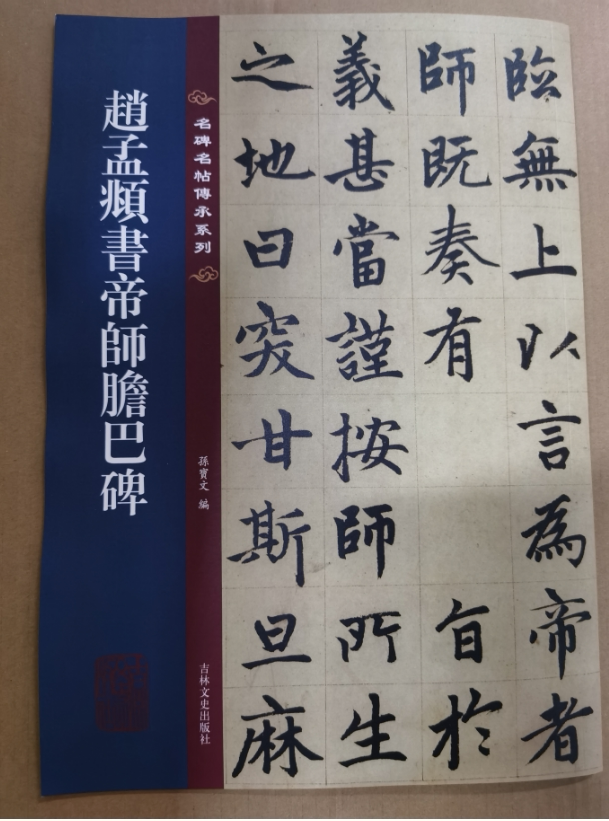 臨無上以言為帝者
師既奏有旨於
義甚當謹按師所生
之地曰突甘斯旦麻
名碑名帖傳承系列
孫寶文 編
吉林文史出版社
趙孟頫書帝師膽巴碑